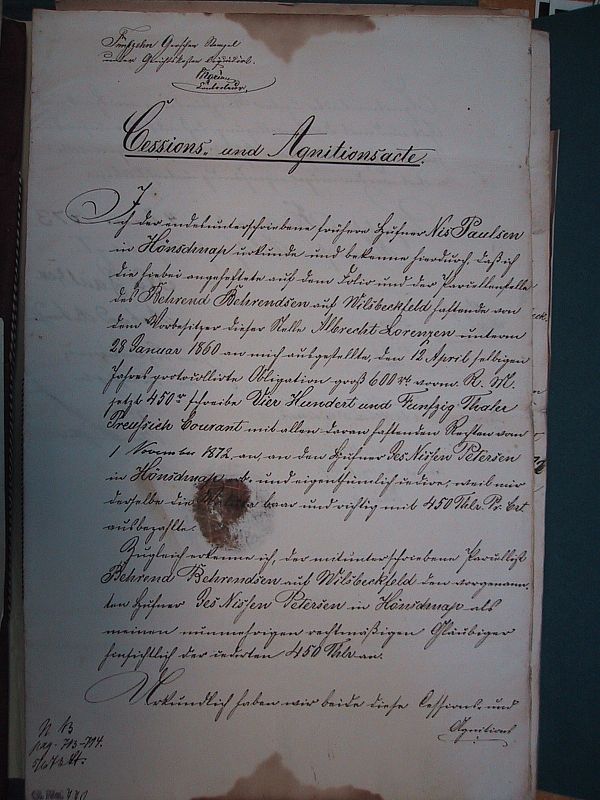 Fünfzehn Groschen Stempel
unter Gerichtskosten
Cessions- und Agnitionsacte.
Ich der endesunterschriebene frühere Hufner Nis Paulsen
in Hönschnap urkunde und bekenne hierdurch, daß ich
die hiebei angeheftete auf dem Folio und der Parcellenstelle
des Behrend Behrendsen auf Wilsbeckfeld haftende von
dem Vorbesitzer dieser Stelle Albrecht Lorenzen unterm
28 Januar 1860 an mich ausgestellte, den 12 April selbigen
Jahres protocollirte Obligation groß 600 rt vorm. R. M.
jetzt 450 schreibe Vier Hundert und Funfzig Thaler
Preußisch Courant mit allen daran haftenden Rechten vom
1 November 1872 an, an den Hufner Jes Nissen Petersen
in Hönschnap und eigenthümlich cedire, weil mir
derselbe die baar und richtig mit 450 Thlr. Pr. Crt
ausbezahlte.
Zugleich erkenne ich, der mitunterschriebene Parcellist
Behrend Behrendsen auf Wilsbeckfeld den vorgenann-
ten Hufner Jes Nissen Petersen in Hönschnap als
meinen nunmehrigen rechtmäßigen Gläubiger
hinsichtlich der cedirten 450 Thlr an.
Urkundlich haben wir beide diese Cessions und
Agnitions
N 13
pag. 713-714.